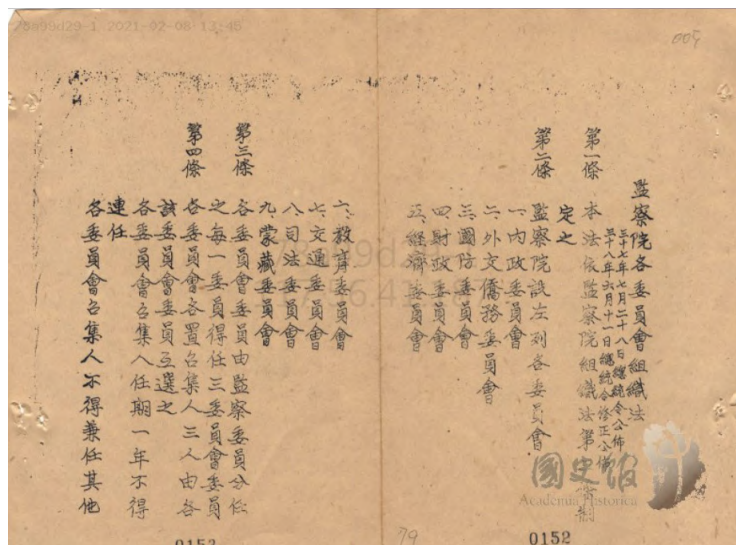 78a99d29-1 2021-02-08 13:45
005
監察院各委員會組織法
三十七年七月二十八日總統令公佈
三十八年六月十一日總統令修正公佈
第一條 本法依監察院組織法第
定之
第二條 監察院設左列各委員會
一、內政委員會
二、外交僑務委員會
三、國防委員會
四、財政委員會
五、經濟委員會
六、教育委員會
七、交通委員會
八、司法委員會
九、蒙藏委員會
第三條 各委員會委員由監察委員分任
之每一委員得任三委員會委員
第四條 各委員會各置召集人三人由各
該委員會委員互選之
各委員會召集人任期一年不得
連任
各委員會召集人不得兼任其他
國史館
Academia Historica
79
0152
0153